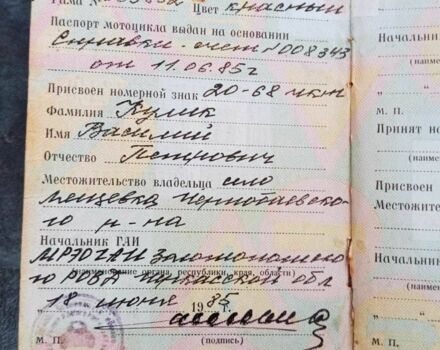 Рама № Цвет красный
Паспорт мотоцикла выдан на основании
Справки-счет № 008343
от 11.06.85 г
Присвоен номерной знак 20-68 чкм
Фамилия Кулик
Имя Василий
Отчество Петрович
Местожительство владельца село
Мельцевка Чернобаевско-
го р-на
Начальник ГАИ
МРЭО ГАИ Золотоношско-
го РОВД Черкасской обл
(наименование органа, республики, края, области)
"18" июня 1985 г.
М. П. (подпись)
Начальни
(на
"
М. П.
Принят на
(наим
Присвоен
Местожител
Начальник
(наименован
"
М. П.